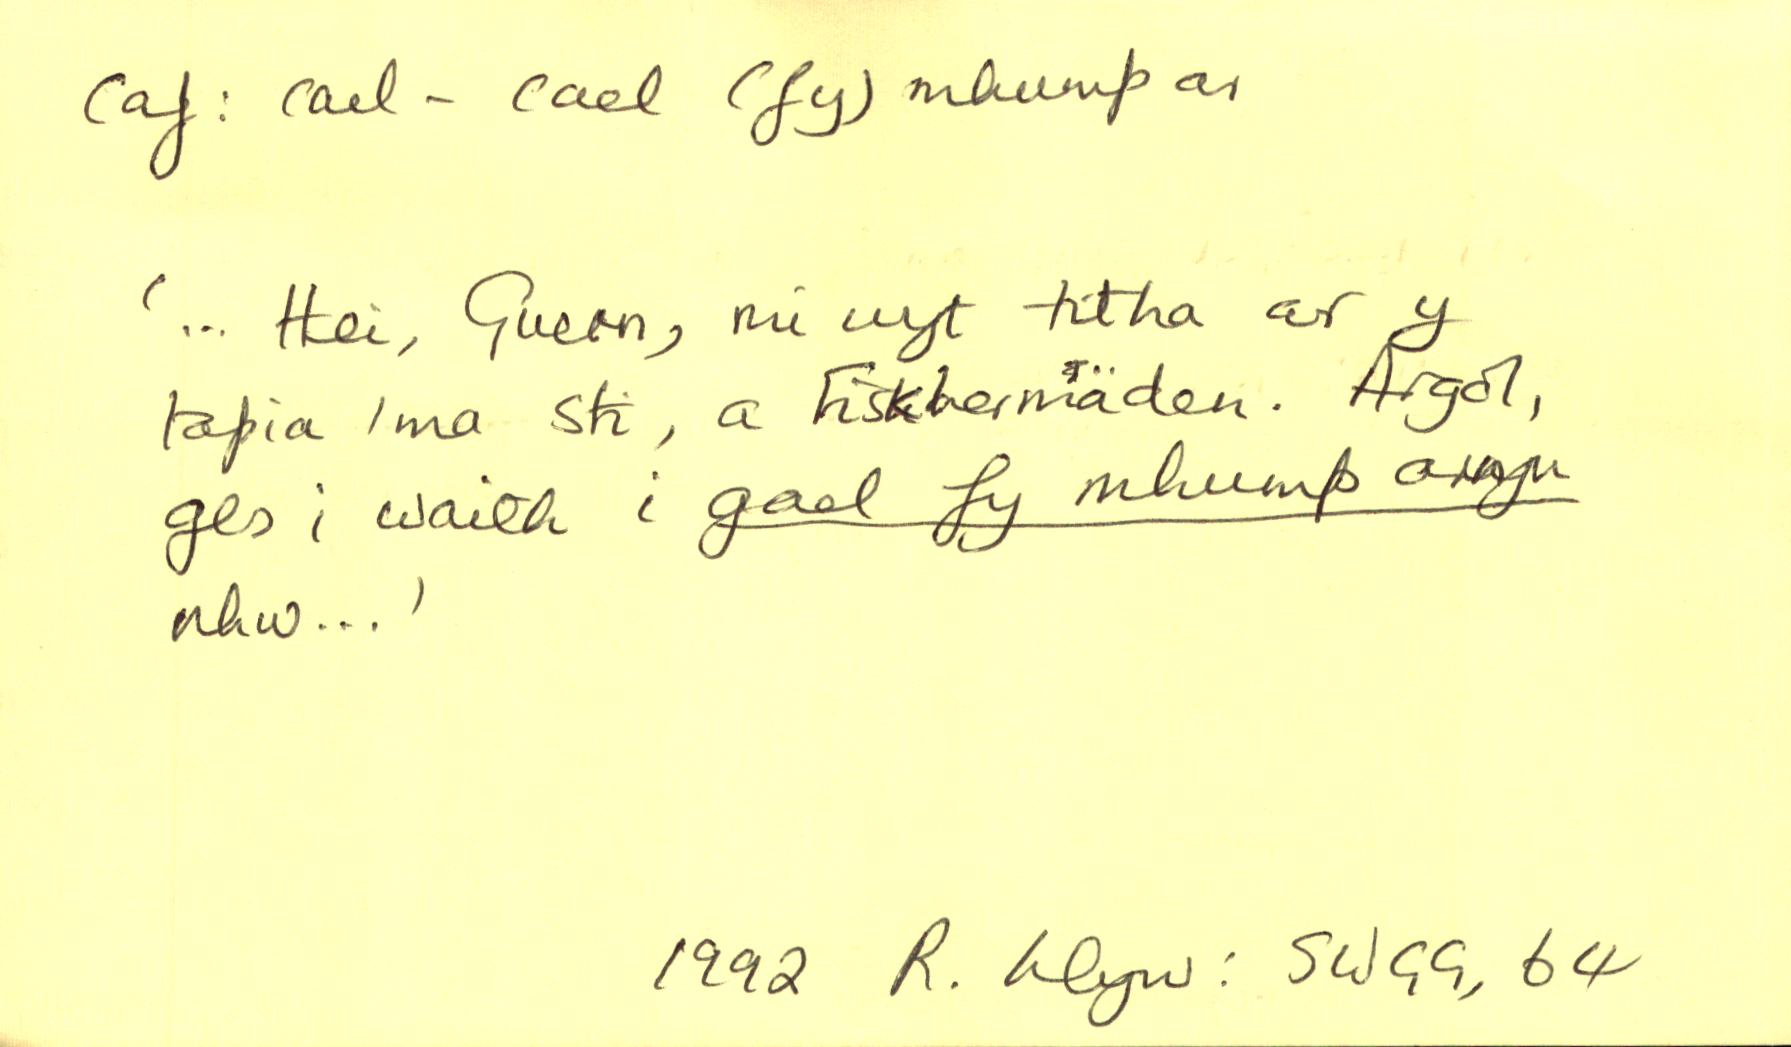 Caf: cael – cael (fy) mhump ar
'... Hei, Gwern, mi wyt titha ar y
tapia 'ma sti, a Fiskhermäden. Argol,
ges i waith i gael fy mhump arnyn
nhw...'
1992 R. Llyw: SWGG, 64